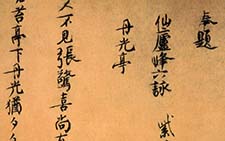 奉題
仙廬峰六詠 紫
丹光亭
人不見張喜尚
苔亭下丹光猶夕